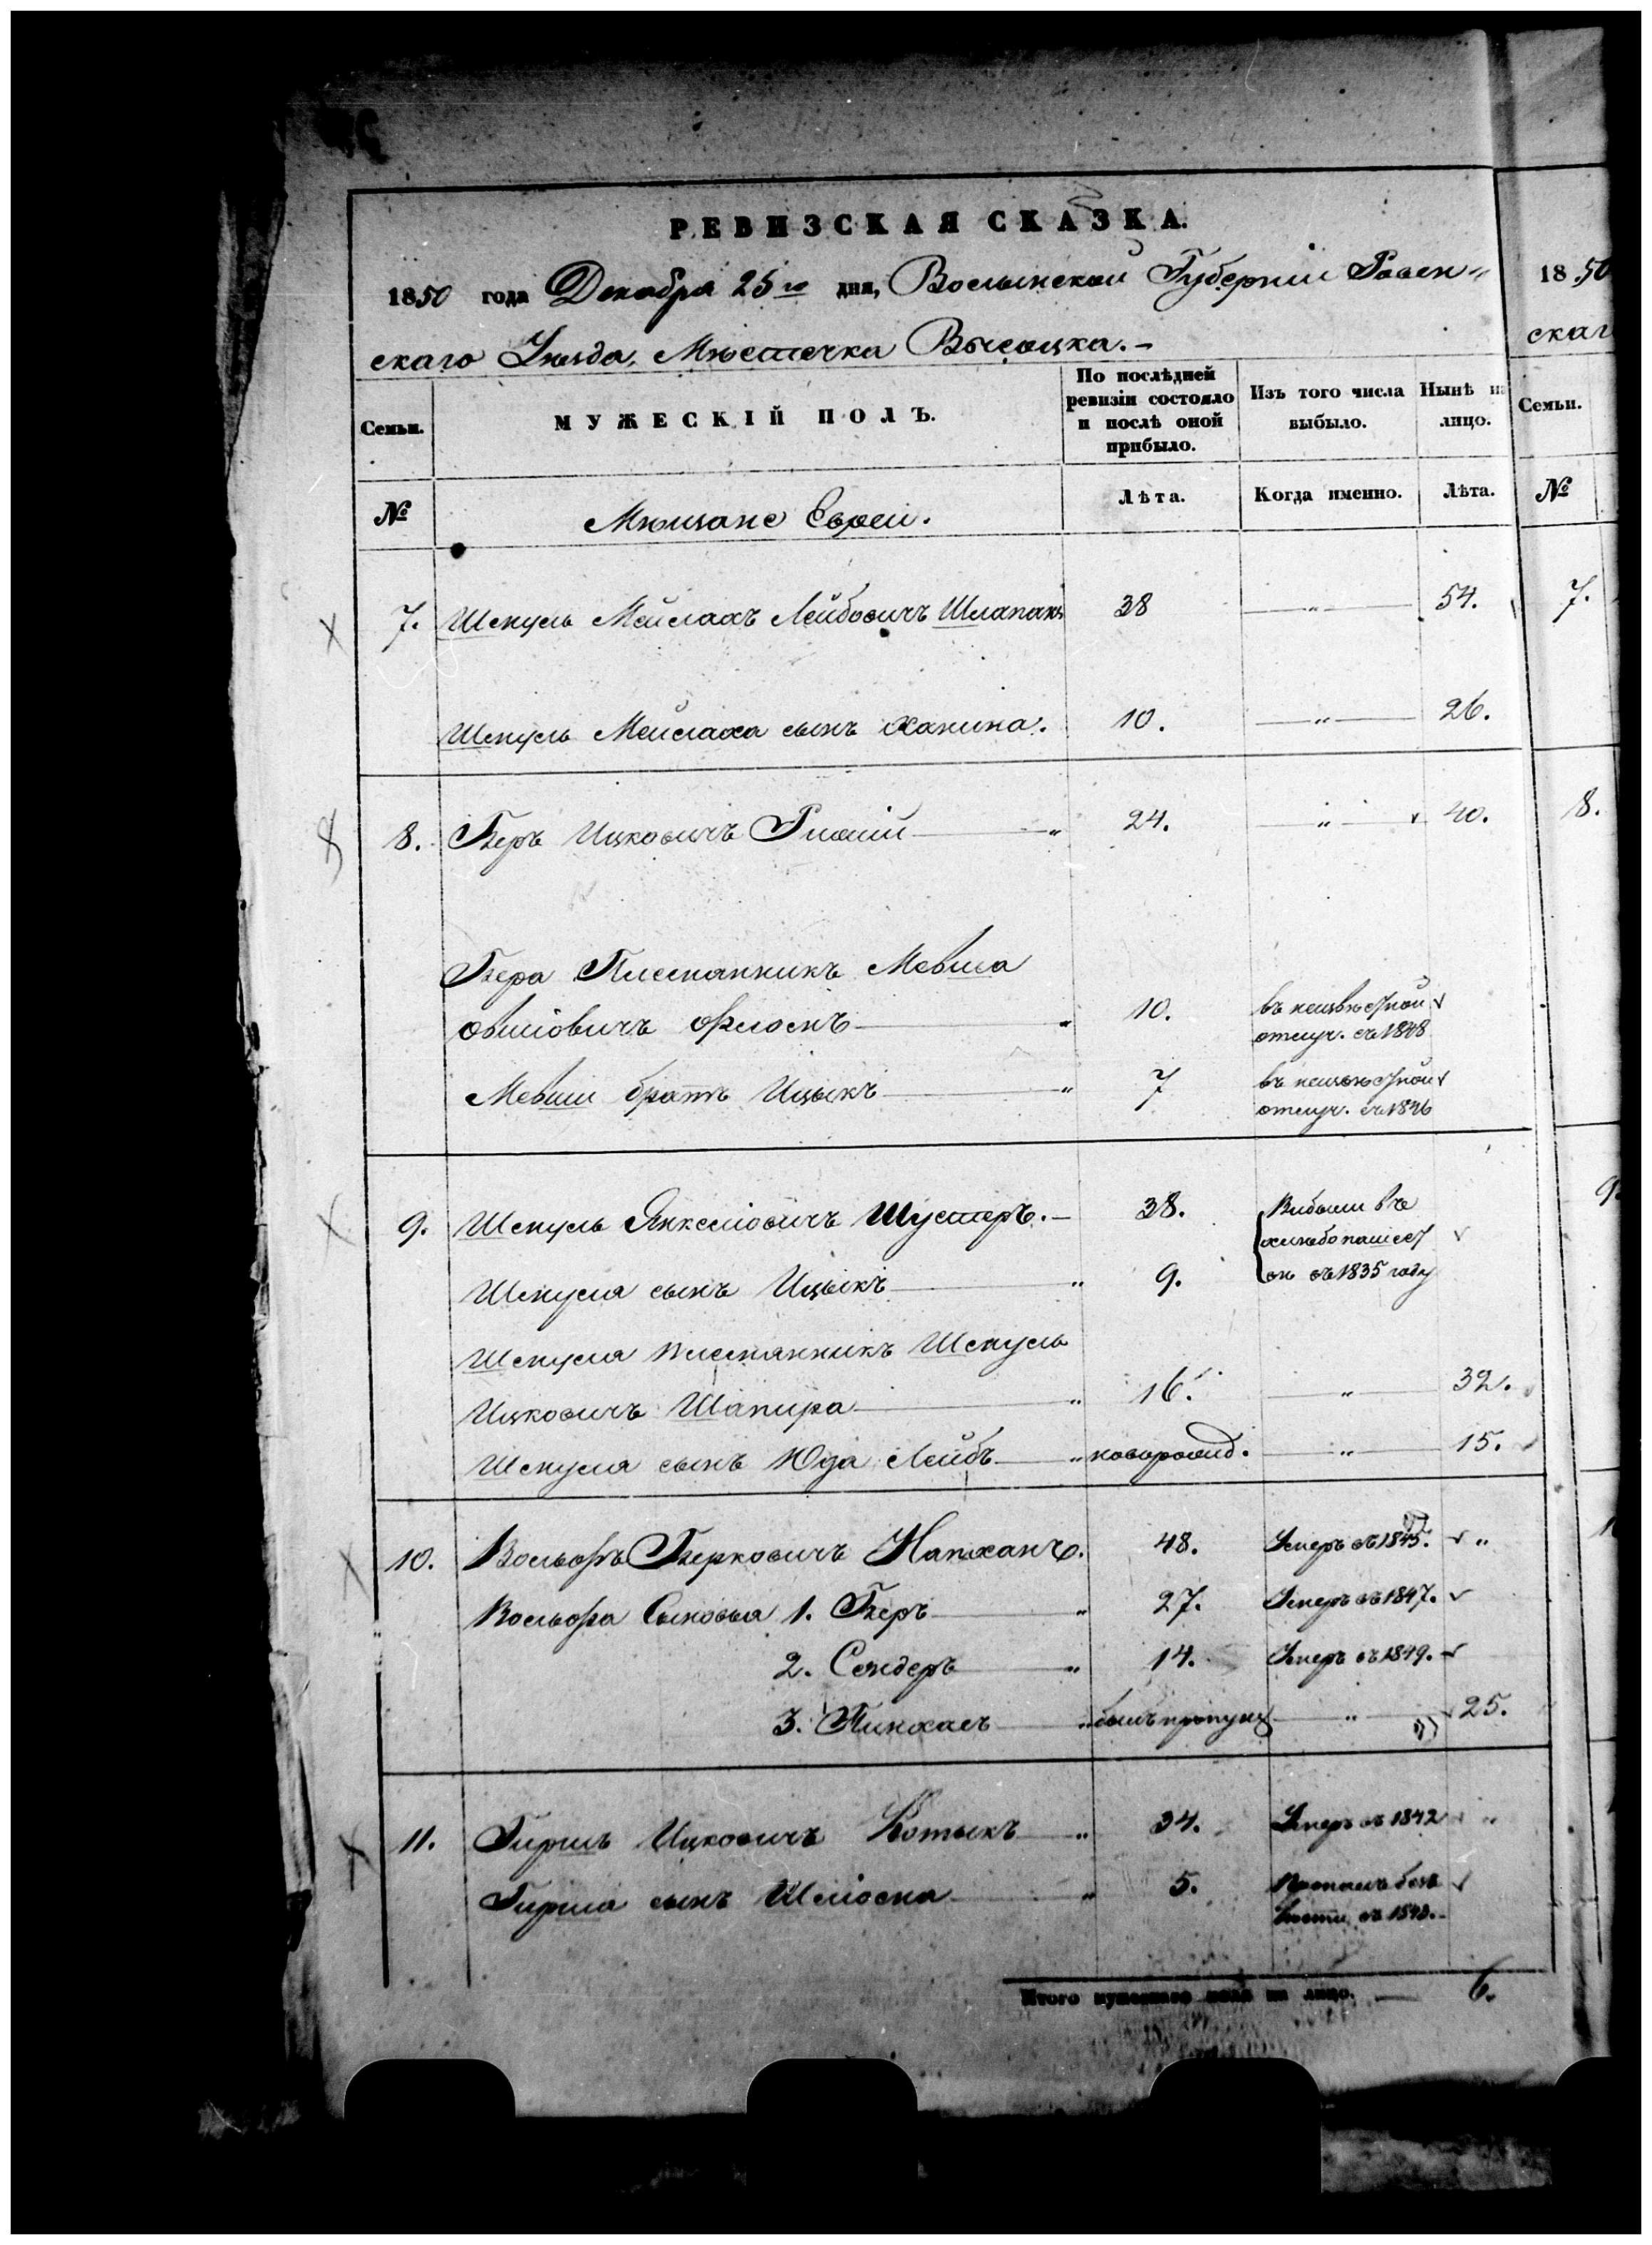 РЕВИЗСКАЯ СКАЗКА.
1850 года Декабря 25го дня, Волынской Губерніи Ровен-
скаго Уѣзда, Мѣстечка Высоцка.-
18 50
скаг
Семьи.
МУЖЕСКІЙ ПОЛЪ.
По послѣдней ревизіи состояло и послѣ оной прибыло.
Изъ того числа выбыло.
Нынѣ на лицо.
Семьи.
№
Мѣщане Евреи.
Лѣта.
Когда именно.
Лѣта.
№
7. Шмуль Мейлахъ Лейбовичъ Шлапакъ 38 — " — 54. 7.
Шмуль Мейлаха сынъ Ханина. 10. — " — 26.
8. Беръ Ицковичъ 24. — " — 40. 8.
Бера Племянникъ Мовша
Овшіовичъ 10. въ неизвѣстной отлуч. съ 1848
Мовши братъ Ицыкъ " 7 въ неизвѣстной отлуч. съ 1846
9. Шмуль Янкеліовичъ Шустеръ.- 38. Выбыли въ
хлѣбопашест
Шмуля сынъ Ицыкъ " 9. въ 1835 году
Шмуля племянникъ Шмуль
Ицковичъ Шапира " 16. — " — 32.
Шмуля сынъ Юда Лейбъ " новорожд. — " — 15.
10. Вольфъ Берковичъ 48. Умеръ въ 1845. "
Вольфа Сыновья 1. Беръ " 27. Умеръ въ 1847.
2. Сендеръ " 14. Умеръ въ 1849.
3. Пинхасъ " былъ пропущ — " — 25.
11. Гиршъ Ицковичъ Котыкъ " 34. Умеръ въ 1842 "
Гирша сынъ Шліома " 5. безъ
вѣсти въ
Итого мужескаго пола на лицо. — 6.